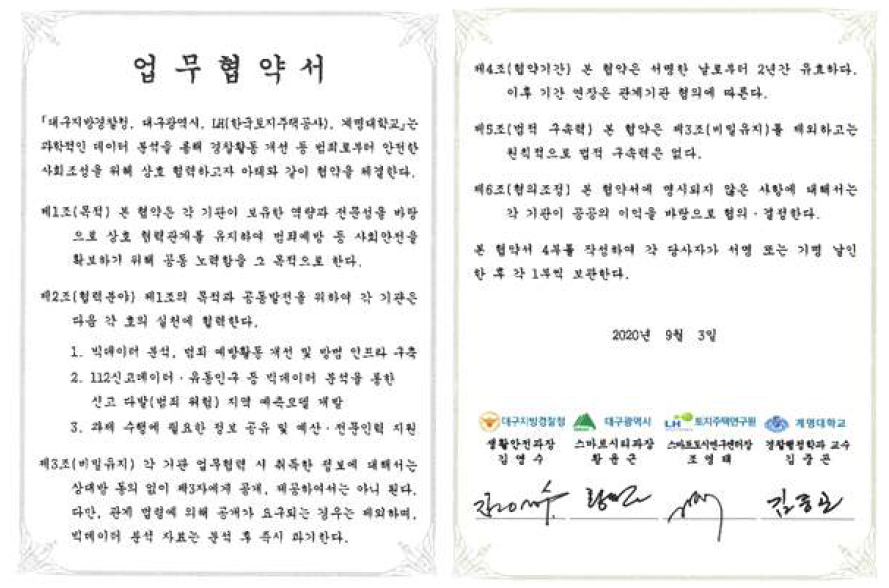 업무협약서
「대구지방경찰청, 대구광역시, LH(한국토지주택공사), 계명대학교」는
과학적인 데이터 분석을 통해 경찰활동 개선 등 범죄로부터 안전한
사회조성을 위해 상호 협력하고자 아래와 같이 협약을 체결한다.
제1조(목적) 본 협약은 각 기관이 보유한 역량과 전문성을 바탕
으로 상호 협력관계를 유지하여 범죄예방 등 사회안전을
확보하기 위해 공동 노력함을 그 목적으로 한다.
제2조(협력분야) 제1조의 목적과 공동발전을 위하여 각 기관은
다음 각 호의 실천에 협력한다.
1. 빅데이터 분석, 범죄 예방활동 개선 및 방범 인프라 구축
2. 112신고데이터·유동인구 등 빅데이터 분석을 통한
신고 다발(범죄 위험) 지역 예측모델 개발
3. 과제 수행에 필요한 정보 공유 및 예산·전문인력 지원
제3조(비밀유지) 각 기관 업무협력 시 취득한 정보에 대해서는
상대방 동의 없이 제3자에게 공개, 제공하여서는 아니 된다.
다만, 관계 법령에 의해 공개가 요구되는 경우는 제외하며,
빅데이터 분석 자료는 분석 후 즉시 파기한다.
제4조(협약기간) 본 협약은 서명한 날로부터 2년간 유효하다.
이후 기간 연장은 관계기관 협의에 따른다.
제5조(법적 구속력) 본 협약은 제3조(비밀유지)를 제외하고는
원칙적으로 법적 구속력은 없다.
제6조(협의조정) 본 협약서에 명시되지 않은 사항에 대해서는
각 기관이 공공의 이익을 바탕으로 협의·결정한다.
본 협약서 4부를 작성하여 각 당사자가 서명 또는 기명 날인
한 후 각 1부씩 보관한다.
2020년 9월 3일
대구지방경찰청 대구광역시 LH 토지주택연구원 계명대학교
생활안전과장 스마트시티과장 스마트도시연구센터장 경찰행정학과 교수
김영수 황윤근 조영태 김중곤
김중곤